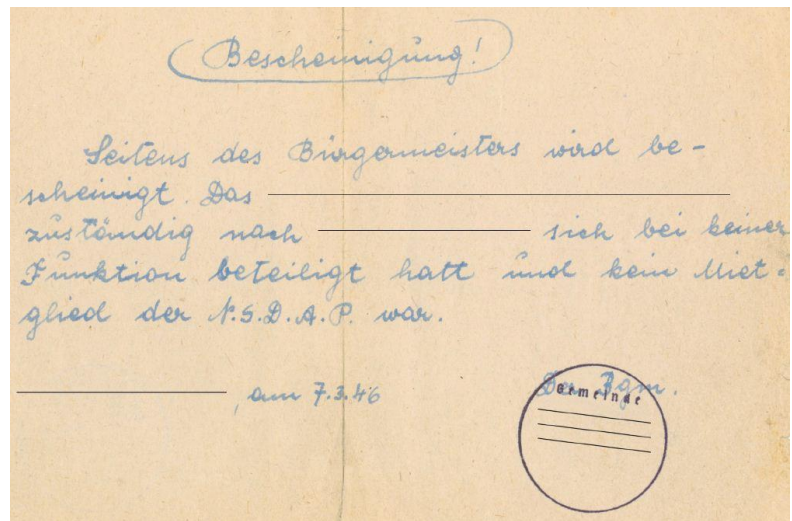 Bescheinigung!
Seitens des Bürgermeisters wird be-
scheinigt. Das
zuständig nach sich bei keiner
Funktion beteiligt hatt und kein Miet-
glied der N.S.D.A.P. war.
, am 7.3.46 Der Bgm.
Gemeinde